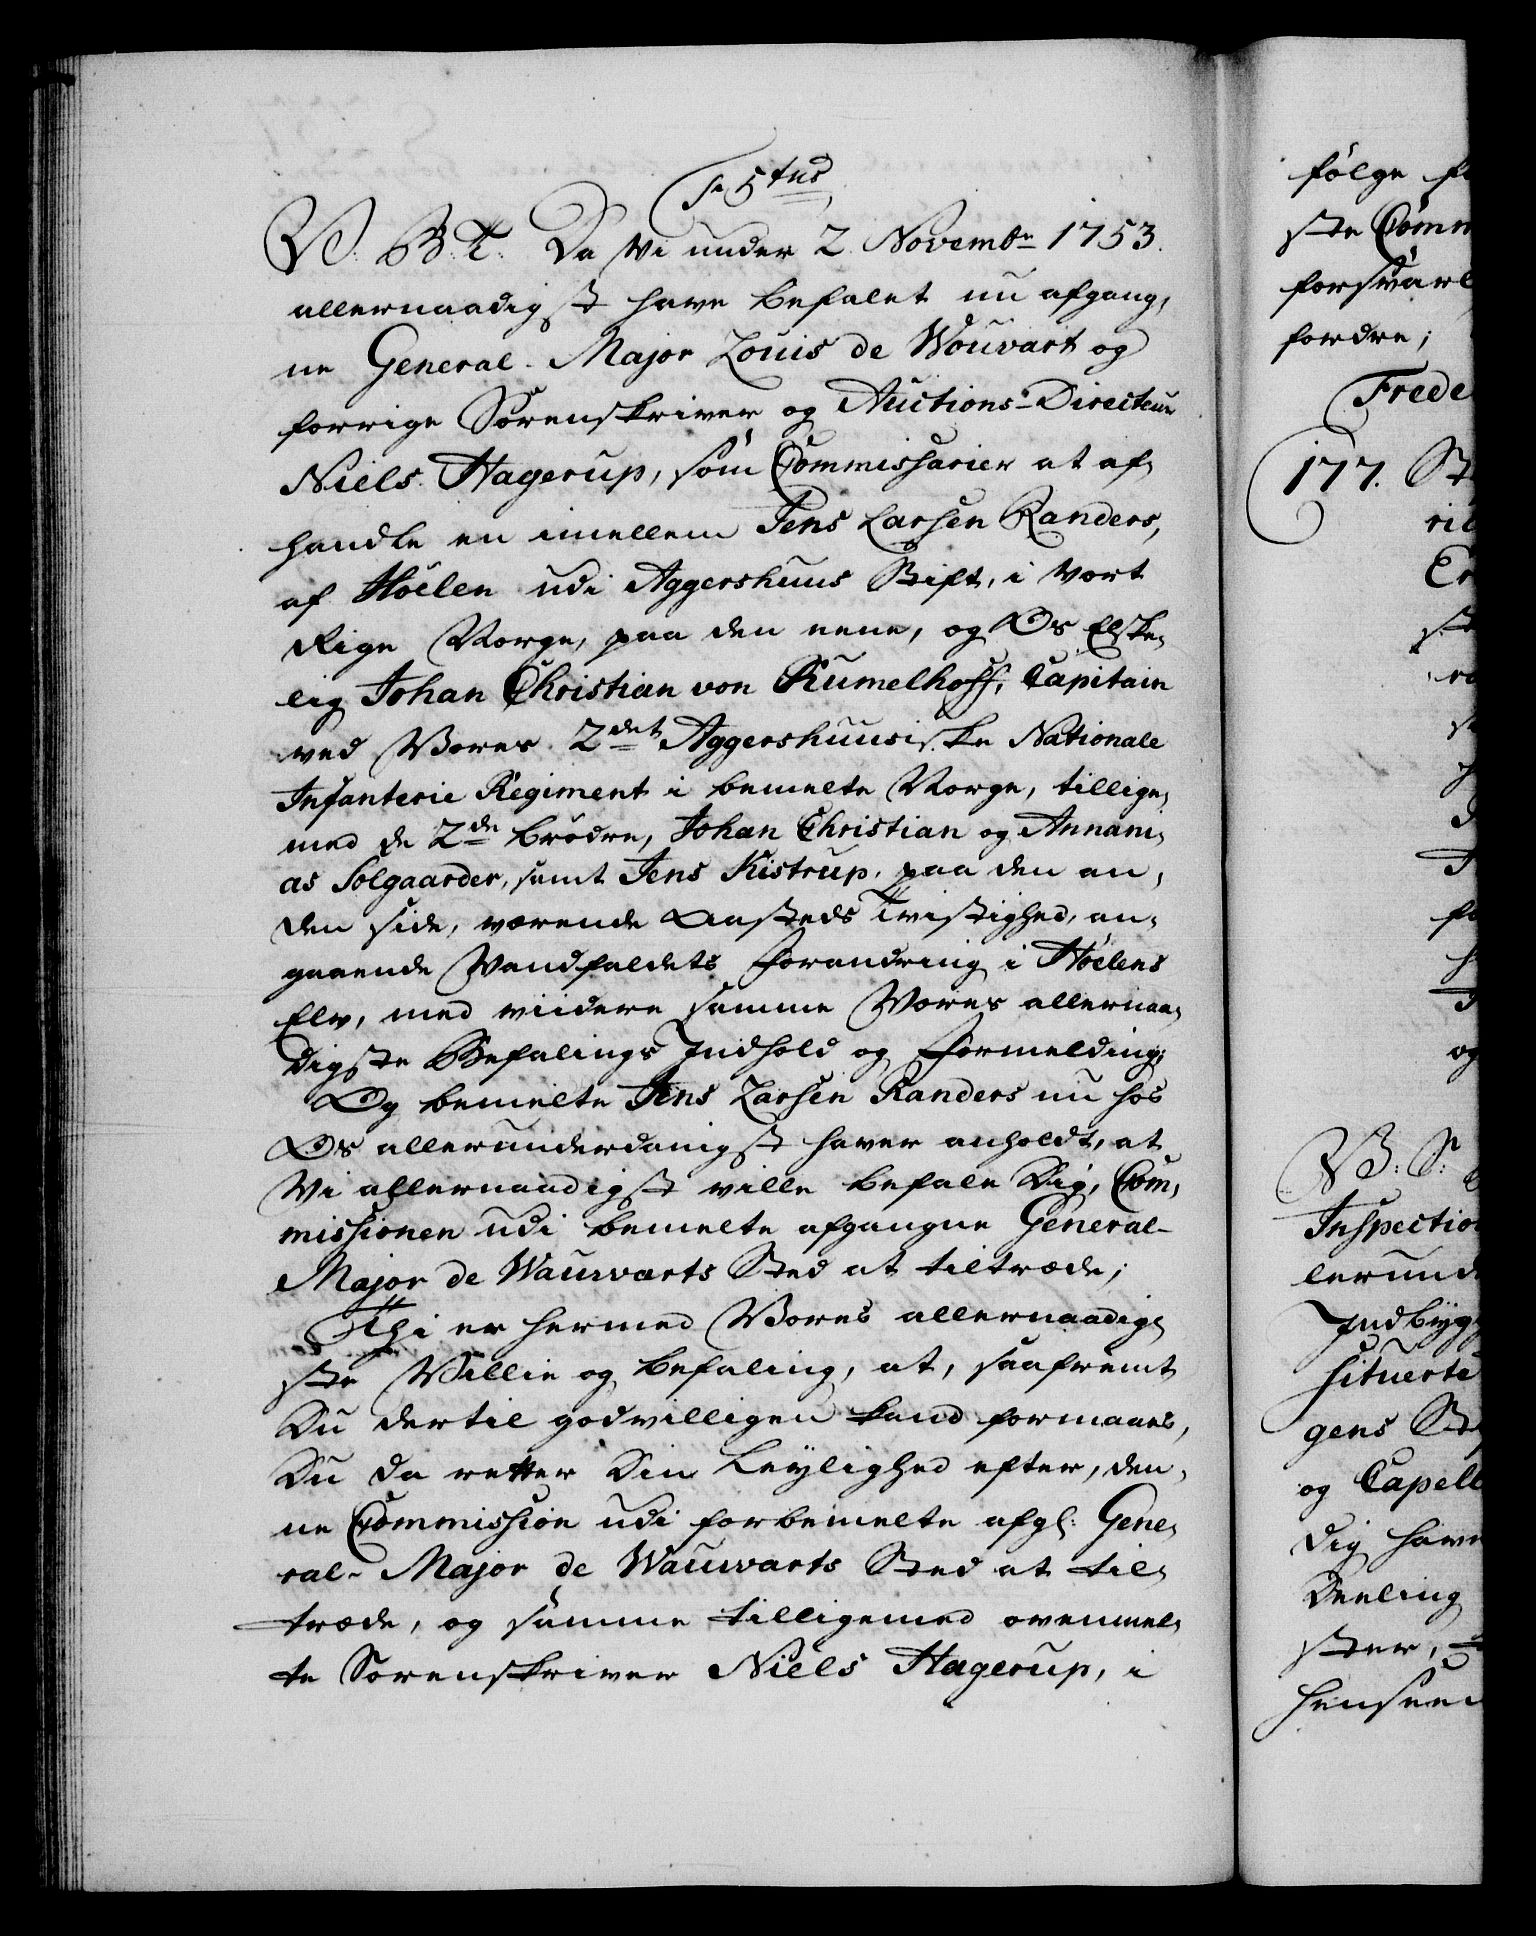 Fr. 5tus
V. G. T. Da Vi under 2 Novembr 1753.
allernaadigst have befalet nu afgang,
ne General-Major Louis de Wouvart og
forrige Sorenskriver og Auctions-Directeur
Niels Hagerup, som Commissarier at af,
handle en imellem Jens Larsen Randers,
af Hoelen udi Aggershuus Stift, i Vort
Rige Norge, paa den eene, og Os Elske,
lig Johan Christian von Rumelhoff, Capitain
ved Vores 2det Aggershuusiske Nationale
Infanterie Regiment i bemelte Norge, tillige,
med de 2de Brødre, Johan Christian og Annani,
as Solgaarder, samt Jens Kistrup, paa den an,
den side, værende Aasteds Tvistighed, an,
gaaende Vandfaldets Forandring i Hoelens
Elv, med viidere samme Vores allernaa,
digste Befalings Indhold og Formelding;
Og bemelte Jens Larsen Randers nu hos
Os allerunderdanigst haver anholdt, at
Vi allernaadigst ville befale Dig, Com,
missionen udi bemelte afgangne General-
Major de Wauvarts Sted at tiltræde;
Thi er hermed Vores allernaadig,
ste Villie og befaling, at, saafremt
Du dertil godvilligen kand formaaes,
Du da retter Din Leylighed efter, den,
ne Commission udi forbemelte afgl: Gene,
ral-Major de Wauvarts Sted at til,
træde, og samme tilligemed ovenmel,
te Sorenskriver Niels Hagerup, i
følge
ste Comm
forsvarl
fordre;
Frede
177. St
ril
og
V: S:
Inspectio
lerund
Indbyg
situerte
gens St
og Capell
Dig have
Deeling
ster,
henseen